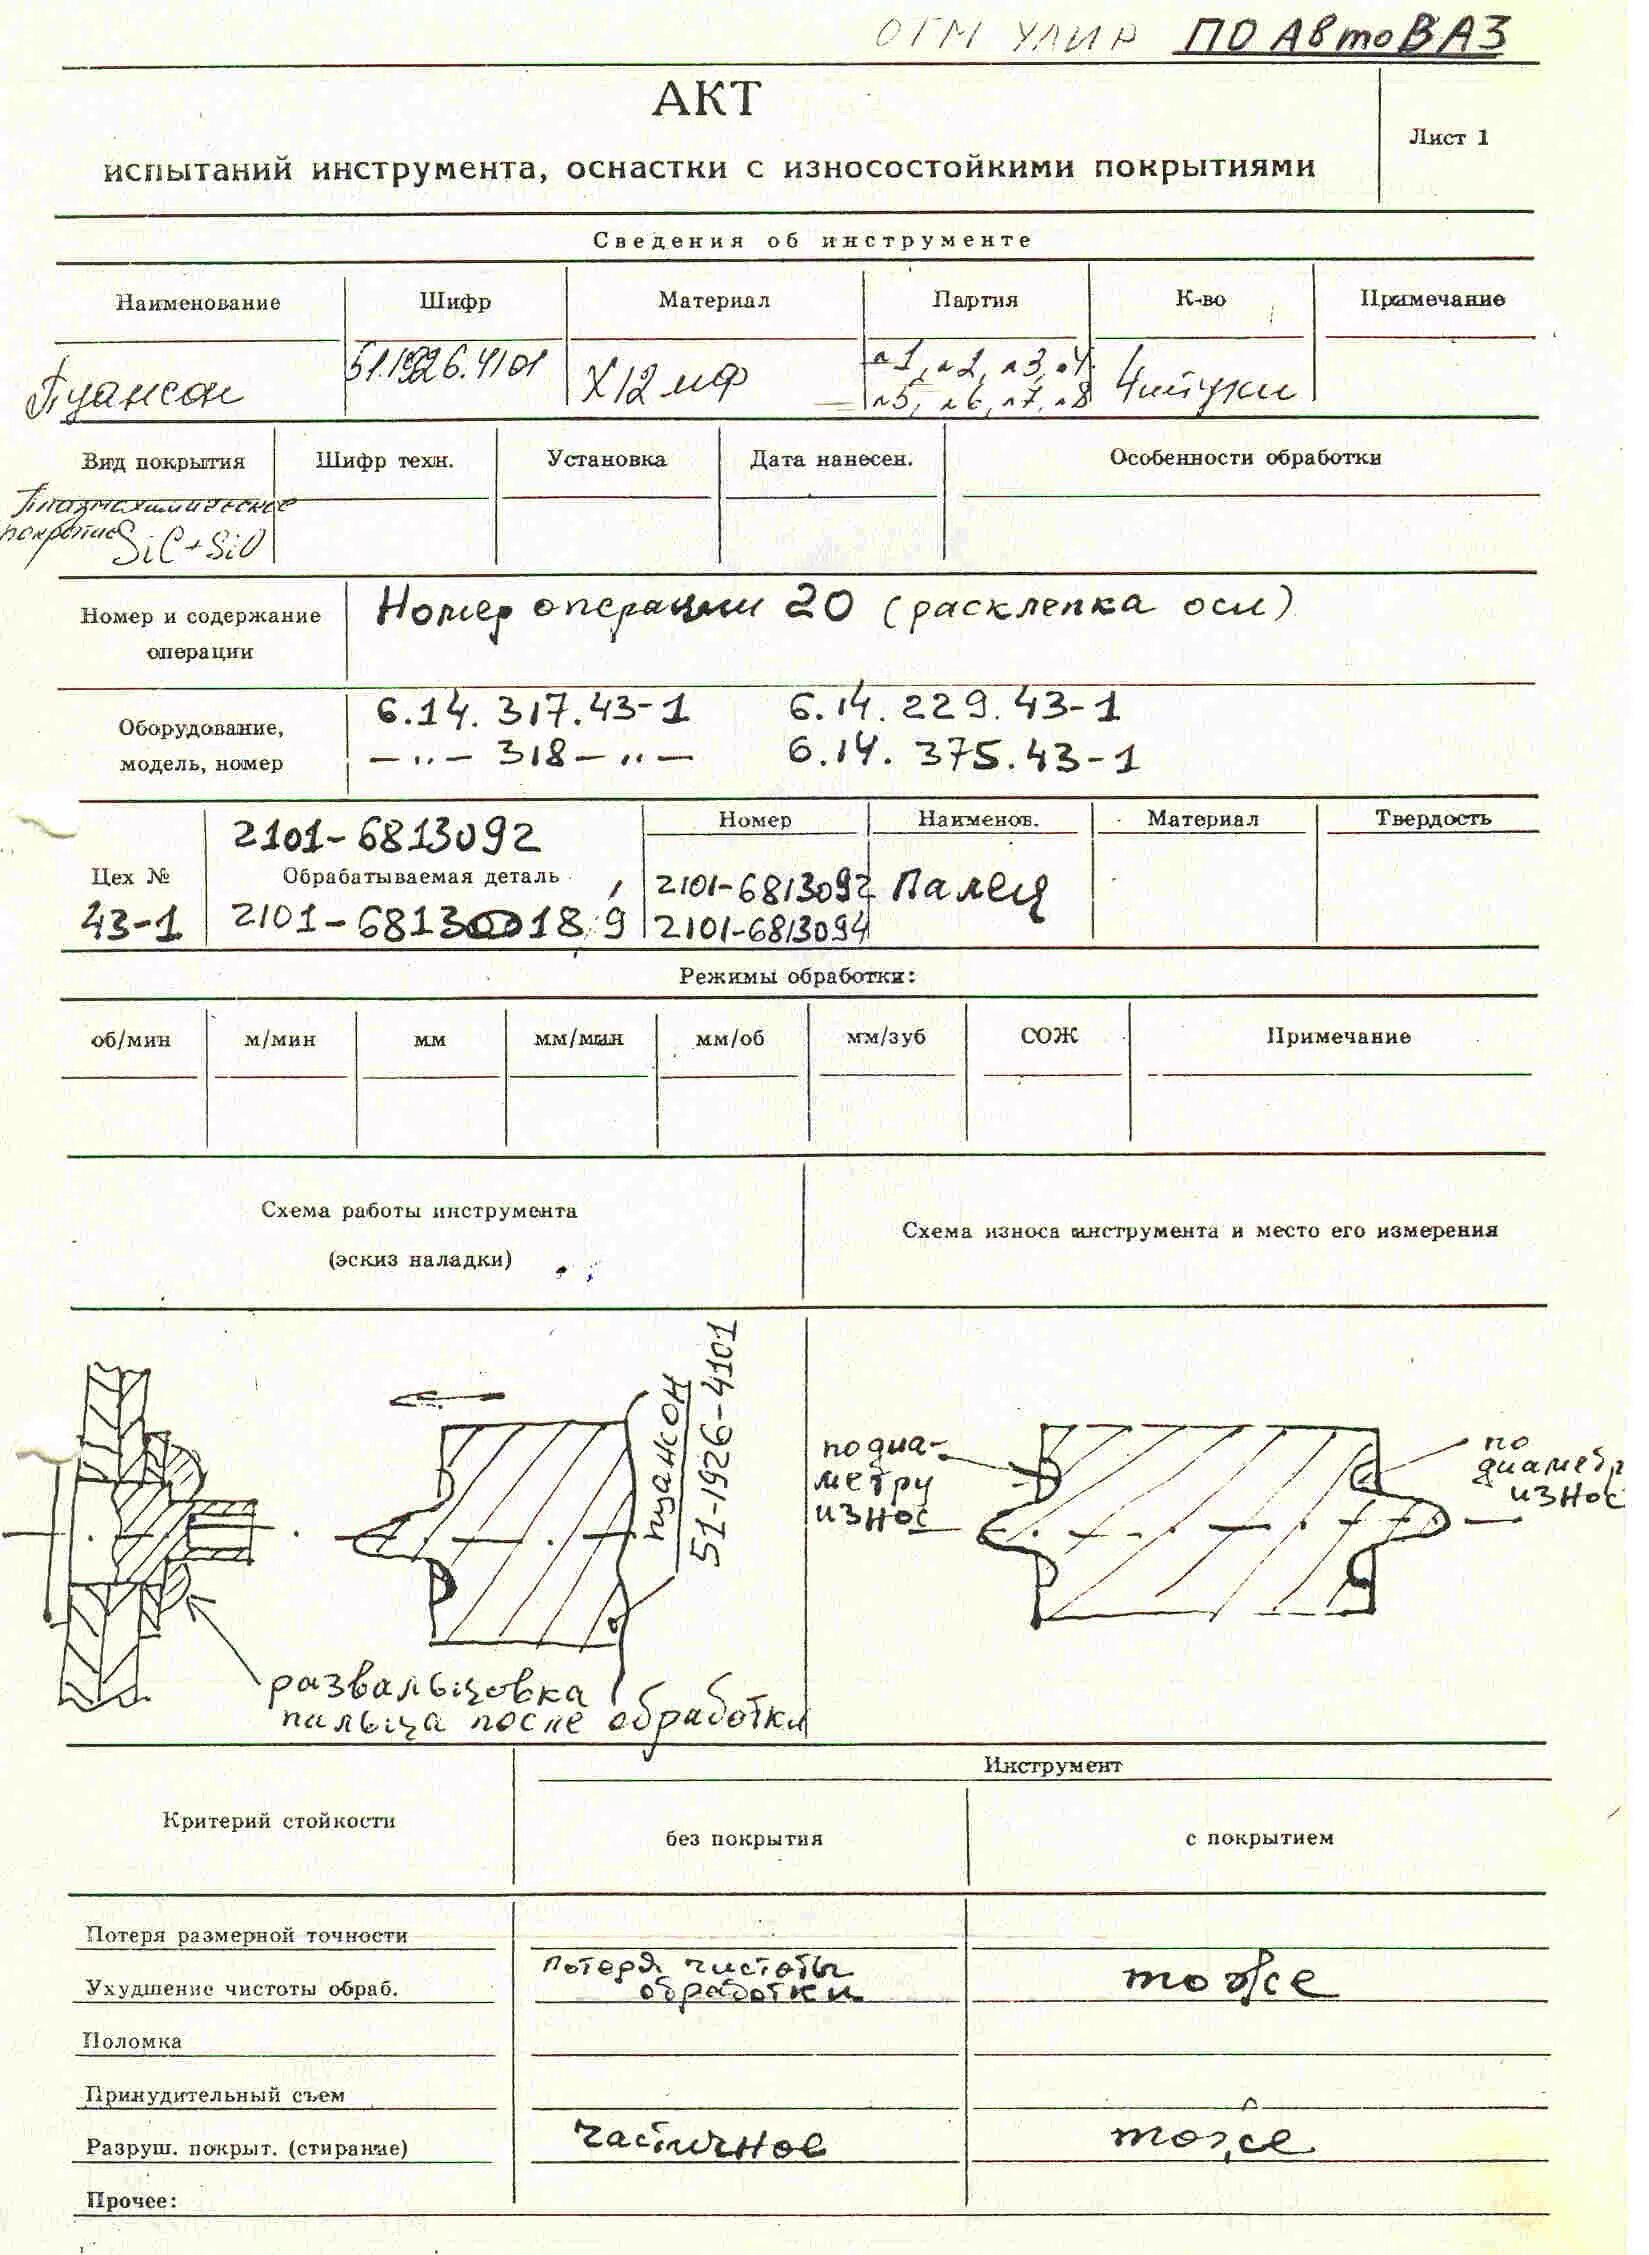 ОГМ УЛИР ПО АвтоВАЗ
АКТ
испытаний инструмента, оснастки с износостойкими покрытиями
Лист 1
Сведения об инструменте
Наименование Шифр Материал Партия К-во Примечание
Пуансон 51.1926.4101 Х12мф л1, л2, л3, л4 4 штуки
л5, л6, л7, л8
Вид покрытия Шифр техн. Установка Дата нанесен. Особенности обработки
Плазмохимическое
покрытие
SiC+SiO
Номер и содержание
операции
Номер операции 20 (расклепка оси)
Оборудование,
модель, номер
6.14.317.43-1 6.14.229.43-1
—„— 318—„— 6.14.375.43-1
Цех №
43-1
2101-6813092
Обрабатываемая деталь
2101-6813 18,9
Номер Наименов. Материал Твердость
2101-6813092 Палец
2101-6813094
Режимы обработки:
об/мин м/мин мм мм/мин мм/об мм/зуб СОЖ Примечание
Схема работы инструмента
(эскиз наладки)
Схема износа инструмента и место его измерения
пуансон
51-1926-4101
развальцовка
пальца после обработки
по диа-
метру
износ
по
диаметр
износ
Критерий стойкости
Инструмент
без покрытия с покрытием
Потеря размерной точности
Ухудшение чистоты обраб. потеря чистоты
обработки тоже
Поломка
Принудительный съем
Разруш. покрыт. (стирание) частичное тоже
Прочее: